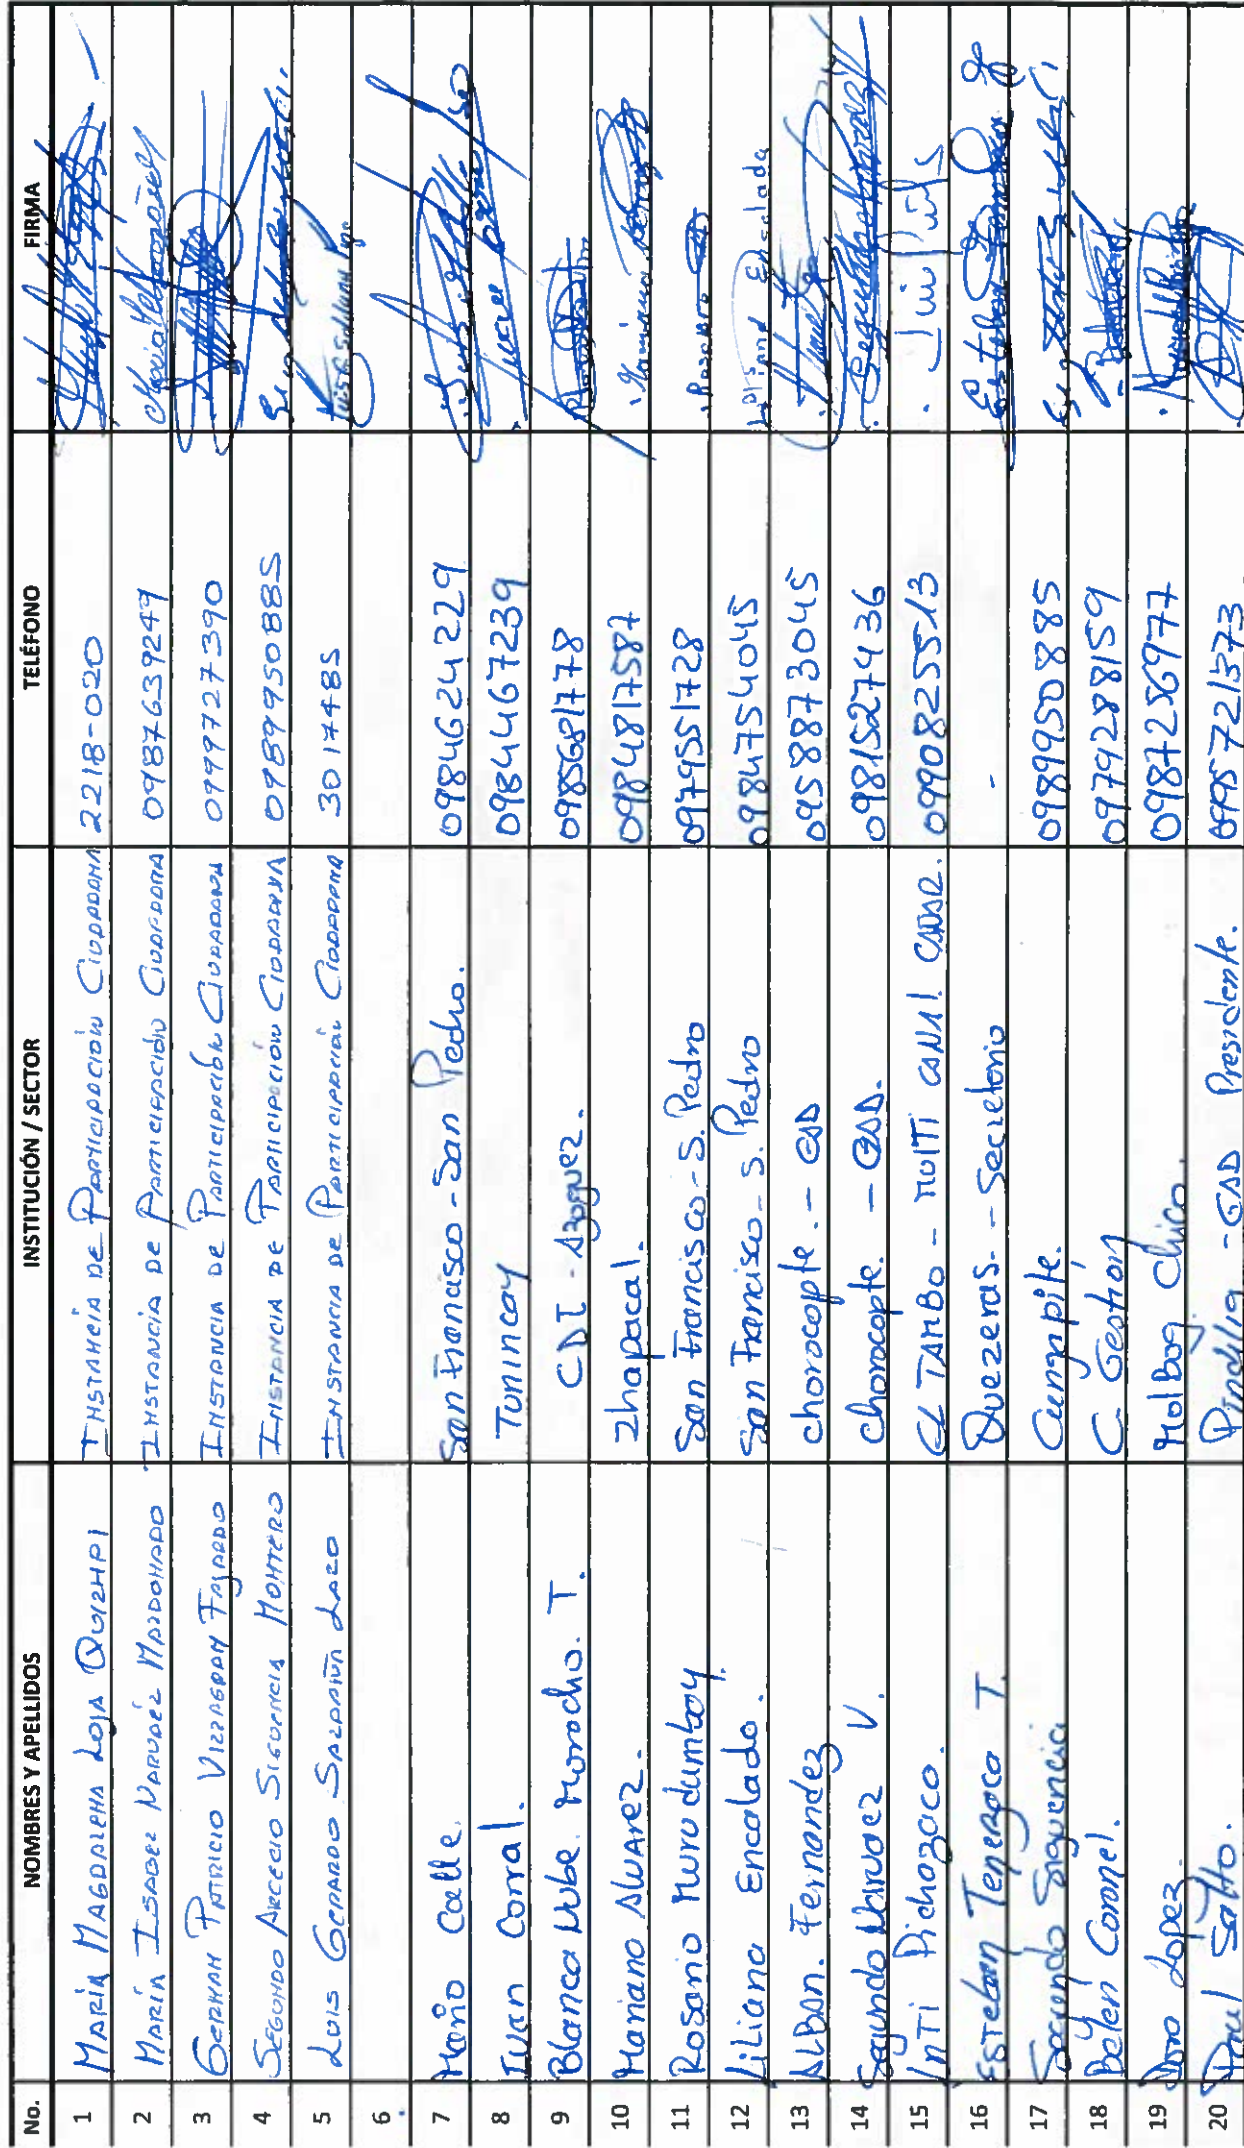 No. NOMBRES Y APELLIDOS INSTITUCIÓN / SECTOR TELÉFONO FIRMA
1 MARÍA MAGDALENA LOJA QUIZHPI INSTANCIA DE PARTICIPACIÓN CIUDADANA 2218-020
2 MARÍA ISABEL NARVÁEZ MALDONADO INSTANCIA DE PARTICIPACIÓN CIUDADANA 0987639249
3 GERMAN PATRICIO VILLAGRAN FAJARDO INSTANCIA DE PARTICIPACIÓN CIUDADANA 0999727390
4 SEGUNDO ARCECIO SIGUENCIA MONTERO INSTANCIA DE PARTICIPACIÓN CIUDADANA 0989950885
5 LUIS GERARDO SALDAÑA LAZO INSTANCIA DE PARTICIPACIÓN CIUDADANA 3017485
6
7 Mario Calle. San Francisco - San Pedro. 0984624229
8 Ivan Corral. Tunincay 0984467239
9 Blanca Nube Morocho. T. CDI - Azogues. 0985681778
10 Mariano Alvarez. Zhapacal. 0984817587
11 Rosario Murudumbay. San Francisco - S. Pedro 0979551728
12 Liliana Encalado. San Francisco - S. Pedro 0984754045 Liliana Encalada
13 Alban. Fernandez chorocopte. - GAD 0958873045
14 Segundo Narvaez V. chorocopte. - GAD. 0981527436
15 INTI Pichazaco. EL TAMBO - MULTI CANAL CAÑAR. 0990825513
16 Esteban Tenezaca T. Quezeras. - Secretario -
17 Segundo Siguencia Cungapite. 0989950885
18 Belén Coronel. C. Gestion 0979288159
19 Dora Lopez. Molbog Chico. 0987256977
20 Paul Salto. Pindilig - GAD Presidente. 0995721373